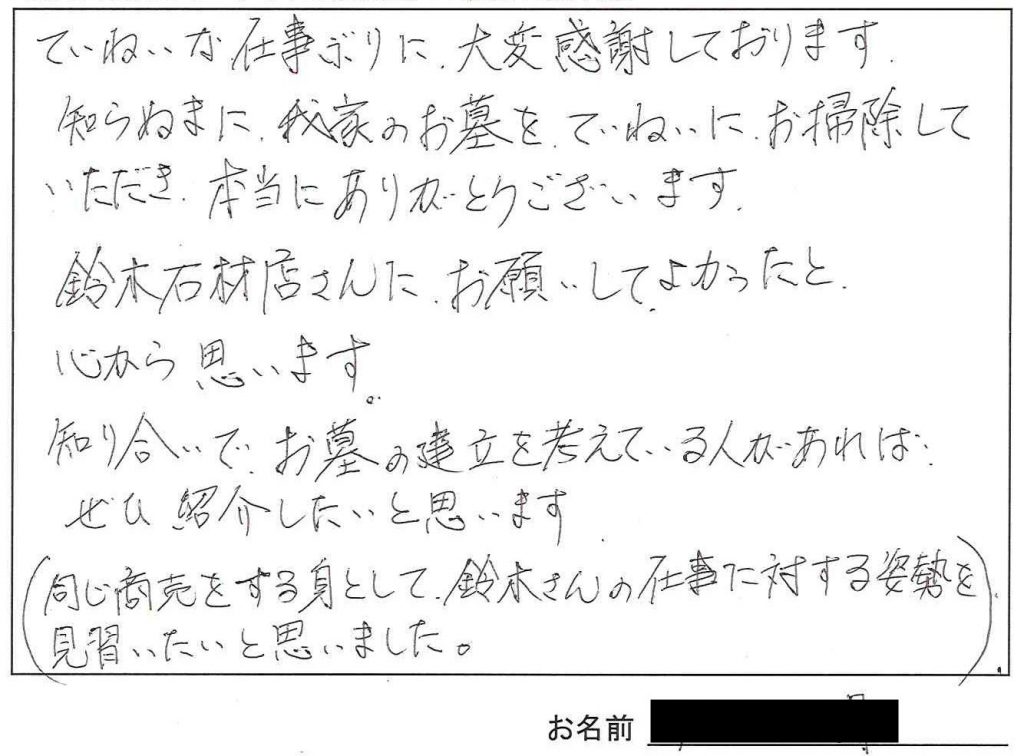 ていねいな仕事ぶりに、大変感謝しております。
知らぬまに、我家のお墓を、ていねいに、お掃除して
いただき、本当にありがとうございます。
鈴木石材店さんに、お願いしてよかったと、
心から思います。
知り合いで、お墓の建立を考えている人があれば、
ぜひ紹介したいと思います
(同じ商売をする身として、鈴木さんの仕事に対する姿勢を、
見習いたいと思いました。)
お名前